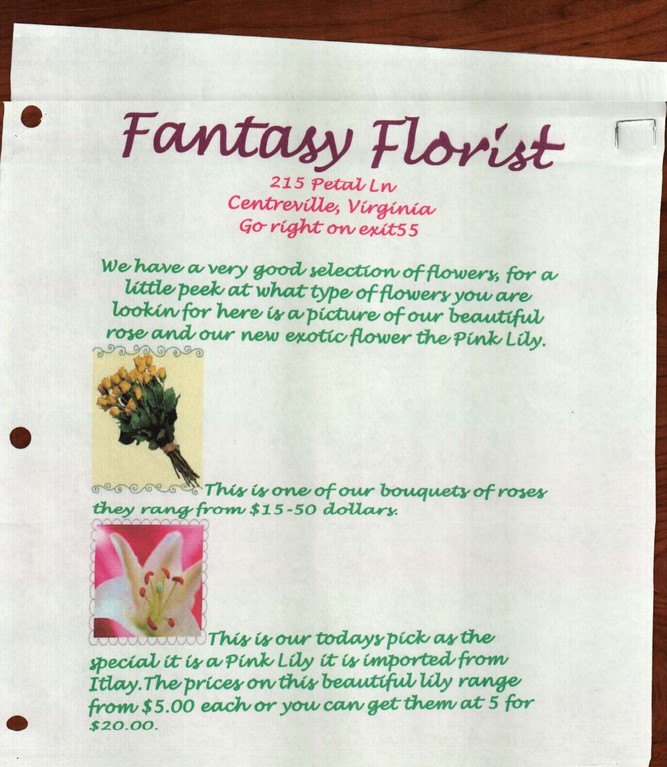 Fantasy Florist
215 Petal Ln
Centreville, Virginia
Go right on exit55
We have a very good selection of flowers, for a
little peek at what type of flowers you are
lookin for here is a picture of our beautiful
rose and our new exotic flower the Pink Lily.
This is one of our bouquets of roses
they rang from $15-50 dollars.
This is our todays pick as the
special it is a Pink Lily it is imported from
Itlay.The prices on this beautiful lily range
from $5.00 each or you can get them at 5 for
$20.00.